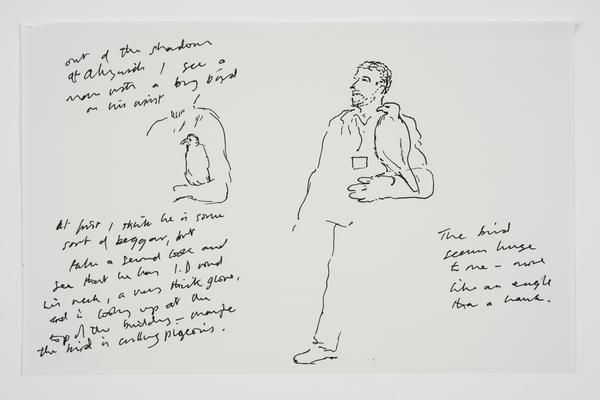 out of the shadows
at I see a
man with a big bird
on his wrist
At first I think he is some
sort of beggar, but
take a second look and
see that he has I.D round
his neck, a very thick glove,
and is looking up at the
top of the building - maybe
the bird is culling pigeons.
The bird
seems huge
to me - more
like an eagle
than a hawk.